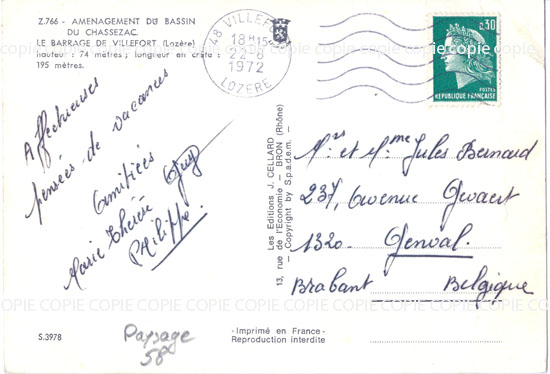 Z.766 - AMENAGEMENT DU BASSIN
DU CHASSEZAC.
LE BARRAGE DE VILLEFORT (Lozère)
hauteur : 74 mètres ; longueur en crête :
195 mètres.
48 VILLEFORT
18H15
22-8
1972
LOZERE
0,30
POSTES
REPUBLIQUE FRANÇAISE
Affectueuses
pensées de vacances
Amitiées
Marie Thérèse Guy
PHilippe.
Les Editions J. CELLARD
13, rue de l'Economie - BRON (Rhône)
Copyright by S.p.a.d.e.m.
Mrs et Mme Jules Bernard
237, Avenue Gevaert
1320 - Genval.
Brabant Belgique
COPIE COPIE COPIE COPIE COPIE COPIE COPIE COPIE COPIE COPIE COPIE COPIE
S.3978
Paysage
58
- Imprimé en France -
Reproduction interdite